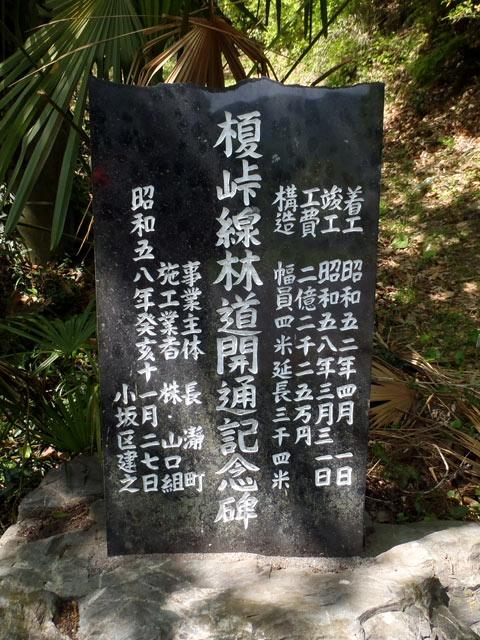 着工 昭和五二年四月一日
竣工 昭和五八年三月三一日
工費 二億二千二五万円
構造 幅員四米延長三千四米
榎峠線林道開通記念碑
事業主体 長瀞町
施工業者 株・山口組
昭和五八年癸亥十一月二七日
小坂区建之